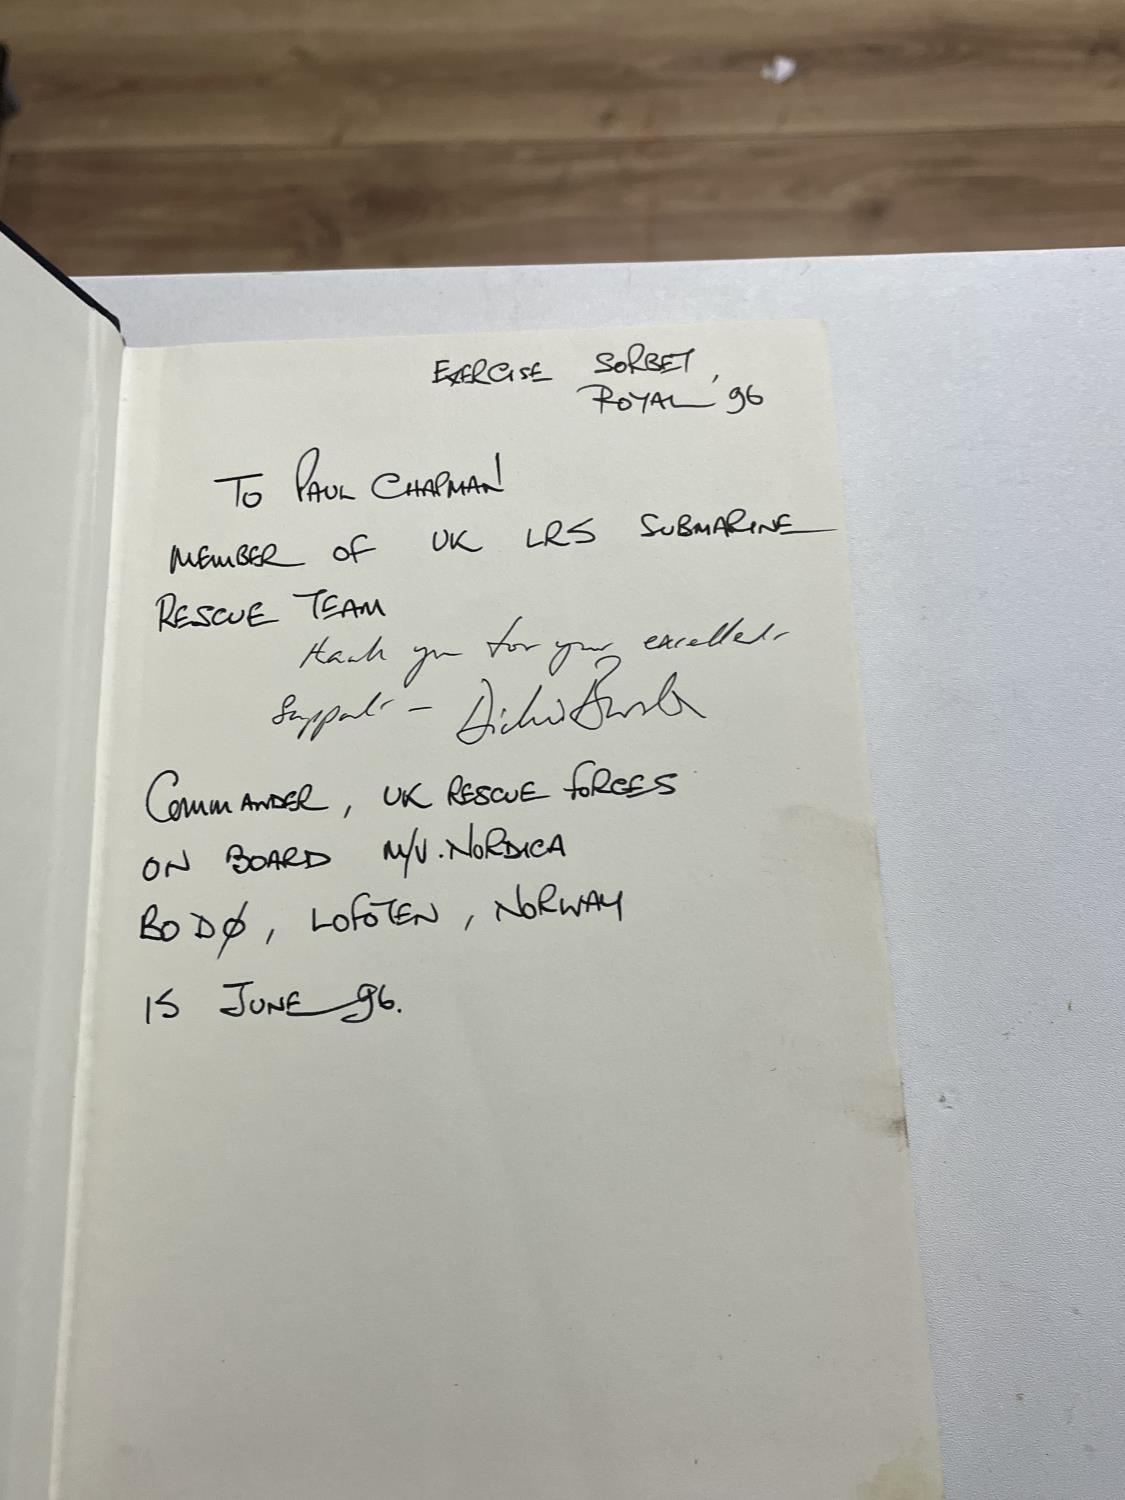 EXERCISE SORBET
ROYAL '96
TO PAUL CHAPMAN
MEMBER OF UK LR5 SUBMARINE
RESCUE TEAM
thank you for your excellent
support –
COMMANDER, UK RESCUE FORCES
ON BOARD M/V. NORDICA
BODØ, LOFOTEN, NORWAY
15 JUNE 96.